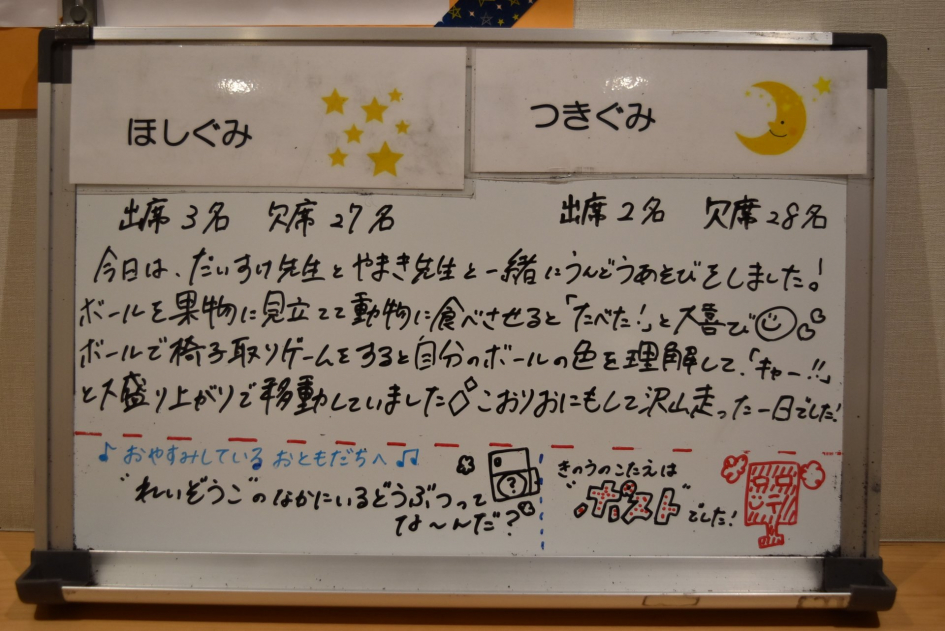 ほしぐみ
つきぐみ
出席3名 欠席27名
出席2名 欠席28名
今日は、だいすけ先生とやまき先生と一緒にうんどうあそびをしました!
ボールを果物に見立てて動物に食べさせると「たべた!」と大喜び
ボールで椅子取りゲームをすると自分のボールの色を理解して、「キャー!!」
と大盛り上がりで移動していました◇こおりおにもして沢山走った一日でした!
♪おやすみしているおともだちへ♫
"れいぞうこ"のなかにいるどうぶつって
な〜んだ?
?
きのうのこたえは
"ポスト"でした!